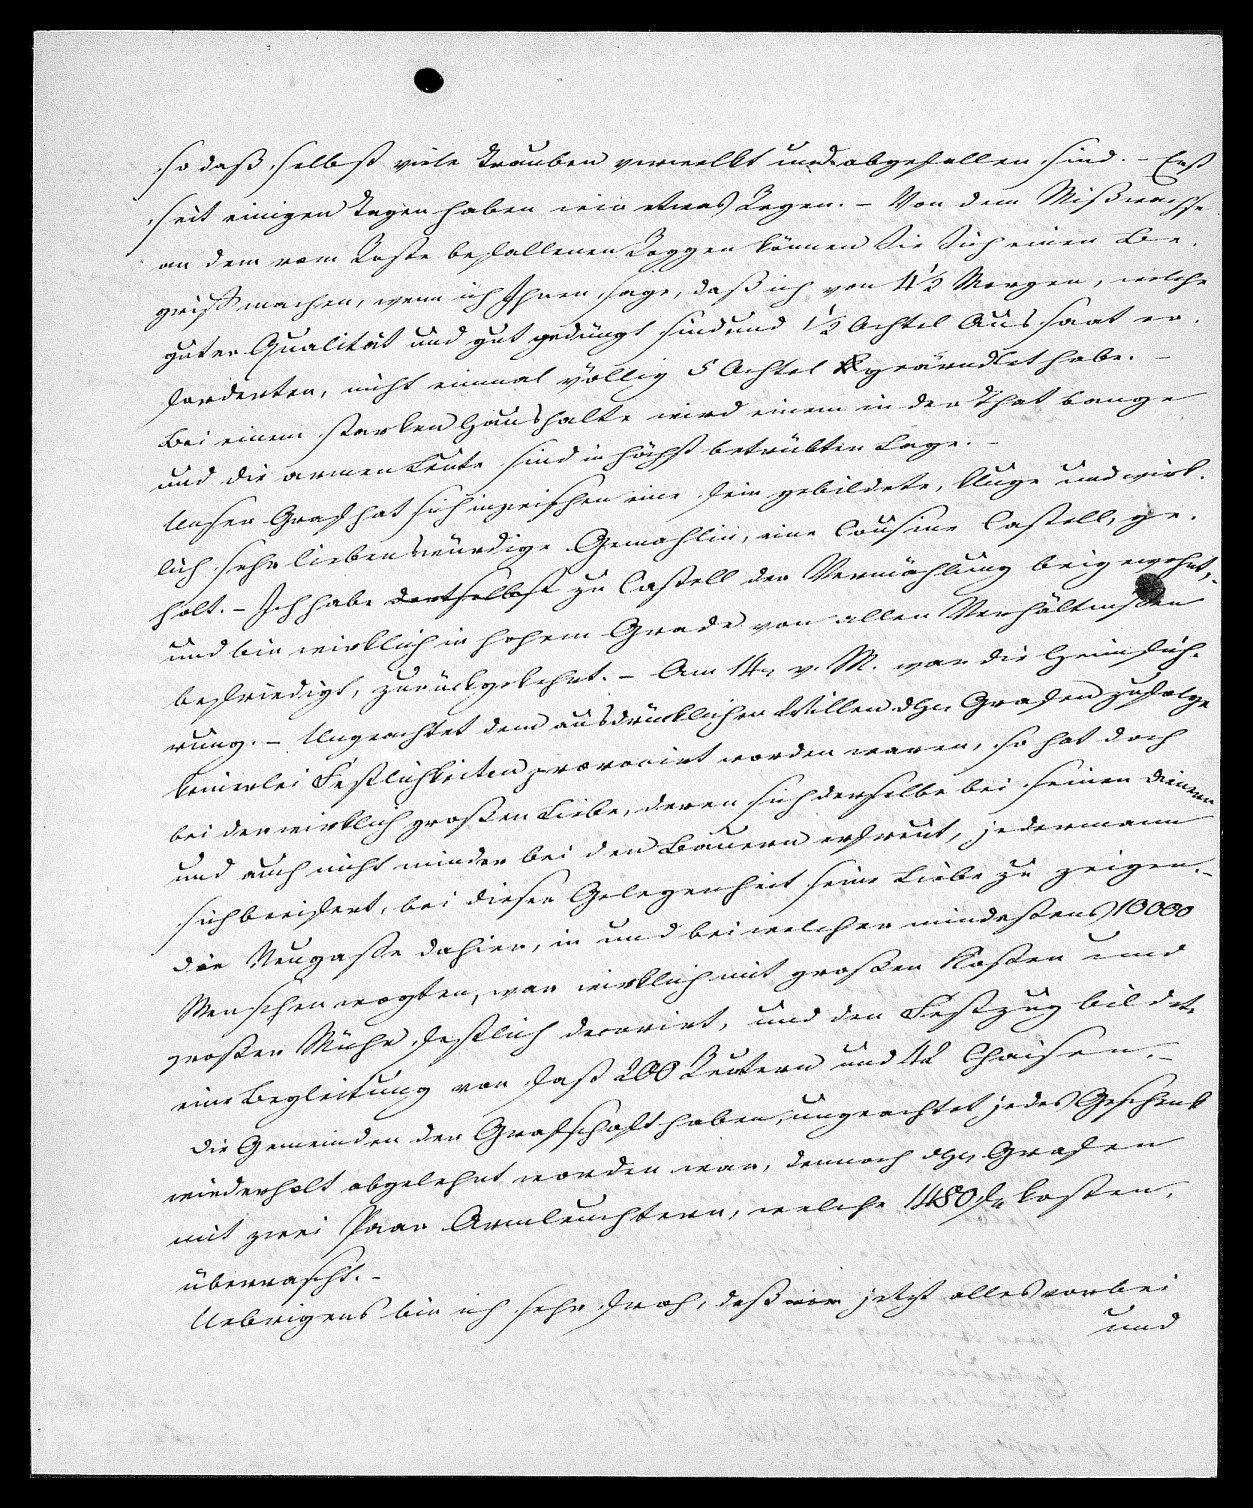 so daß selbst viele Trauben verwelkt und abgefallen sind. - Erst
seit einigen Tagen haben wir etwas Regen. - Von dem Mißwachse
an dem vom Roste befallenen Roggen können Sie Sich einen Be-
griff machen, wenn ich Ihnen sage, daß ich von 4½ Morgen, welche
guter Qualität und gut gedüngt sind und 1½ Achtel Aussaat er-
forderten, nicht einmal völlig 5 Achtel geärndtet habe. -
Bei einem starken Haushalte wird einem in der That bange
und die armen Leute sind in höchst betrübter Lage. -
Unser Graf hat sich inzwischen eine fein gebildete, kluge und wirk-
lich sehr liebenswürdige Gemahlin, eine Cousine Castell, ge-
holt. - Ich habe dortselbst zu Castell der Vermählung beigewohnt, -
und bin wirklich in hohem Grade von allen Verhältnissen
befriedigt, zurückgekehrt. - Am 14n v. M. war die Heimfüh-
rung. - Ungeachtet dem ausdrücklichen Willen des Hn Grafen zufolge
keinerlei Festlichkeiten provocirt worden waren, so hat doch
bei der wirklich großen Liebe, deren sich derselbe bei seinen Dienern
und auch nicht minder bei den Bauern erfreut, jedermann
sich beeifert, bei dieser Gelegenheit seine Liebe zu zeigen. -
Die Neugasse dahier, in und bei welcher mindestens 10000
Menschen wogten, war wirklich mit großen Kosten und
großer Mühe festlich decorirt, und den Festzug bildete
eine Begleitung von fast 200 Reutern und 42 Chaisen. -
Die Gemeinden der Grafschaft haben, ungeachtet jedes Geschenk
wiederholt abgelehnt worden war, dennoch den Hn Grafen
mit zwei Paar Armleuchtern, welche 1480 f. kosten,
überrascht. -
Uebrigens bin ich sehr froh, daß wir jetzt alles vorbei
und